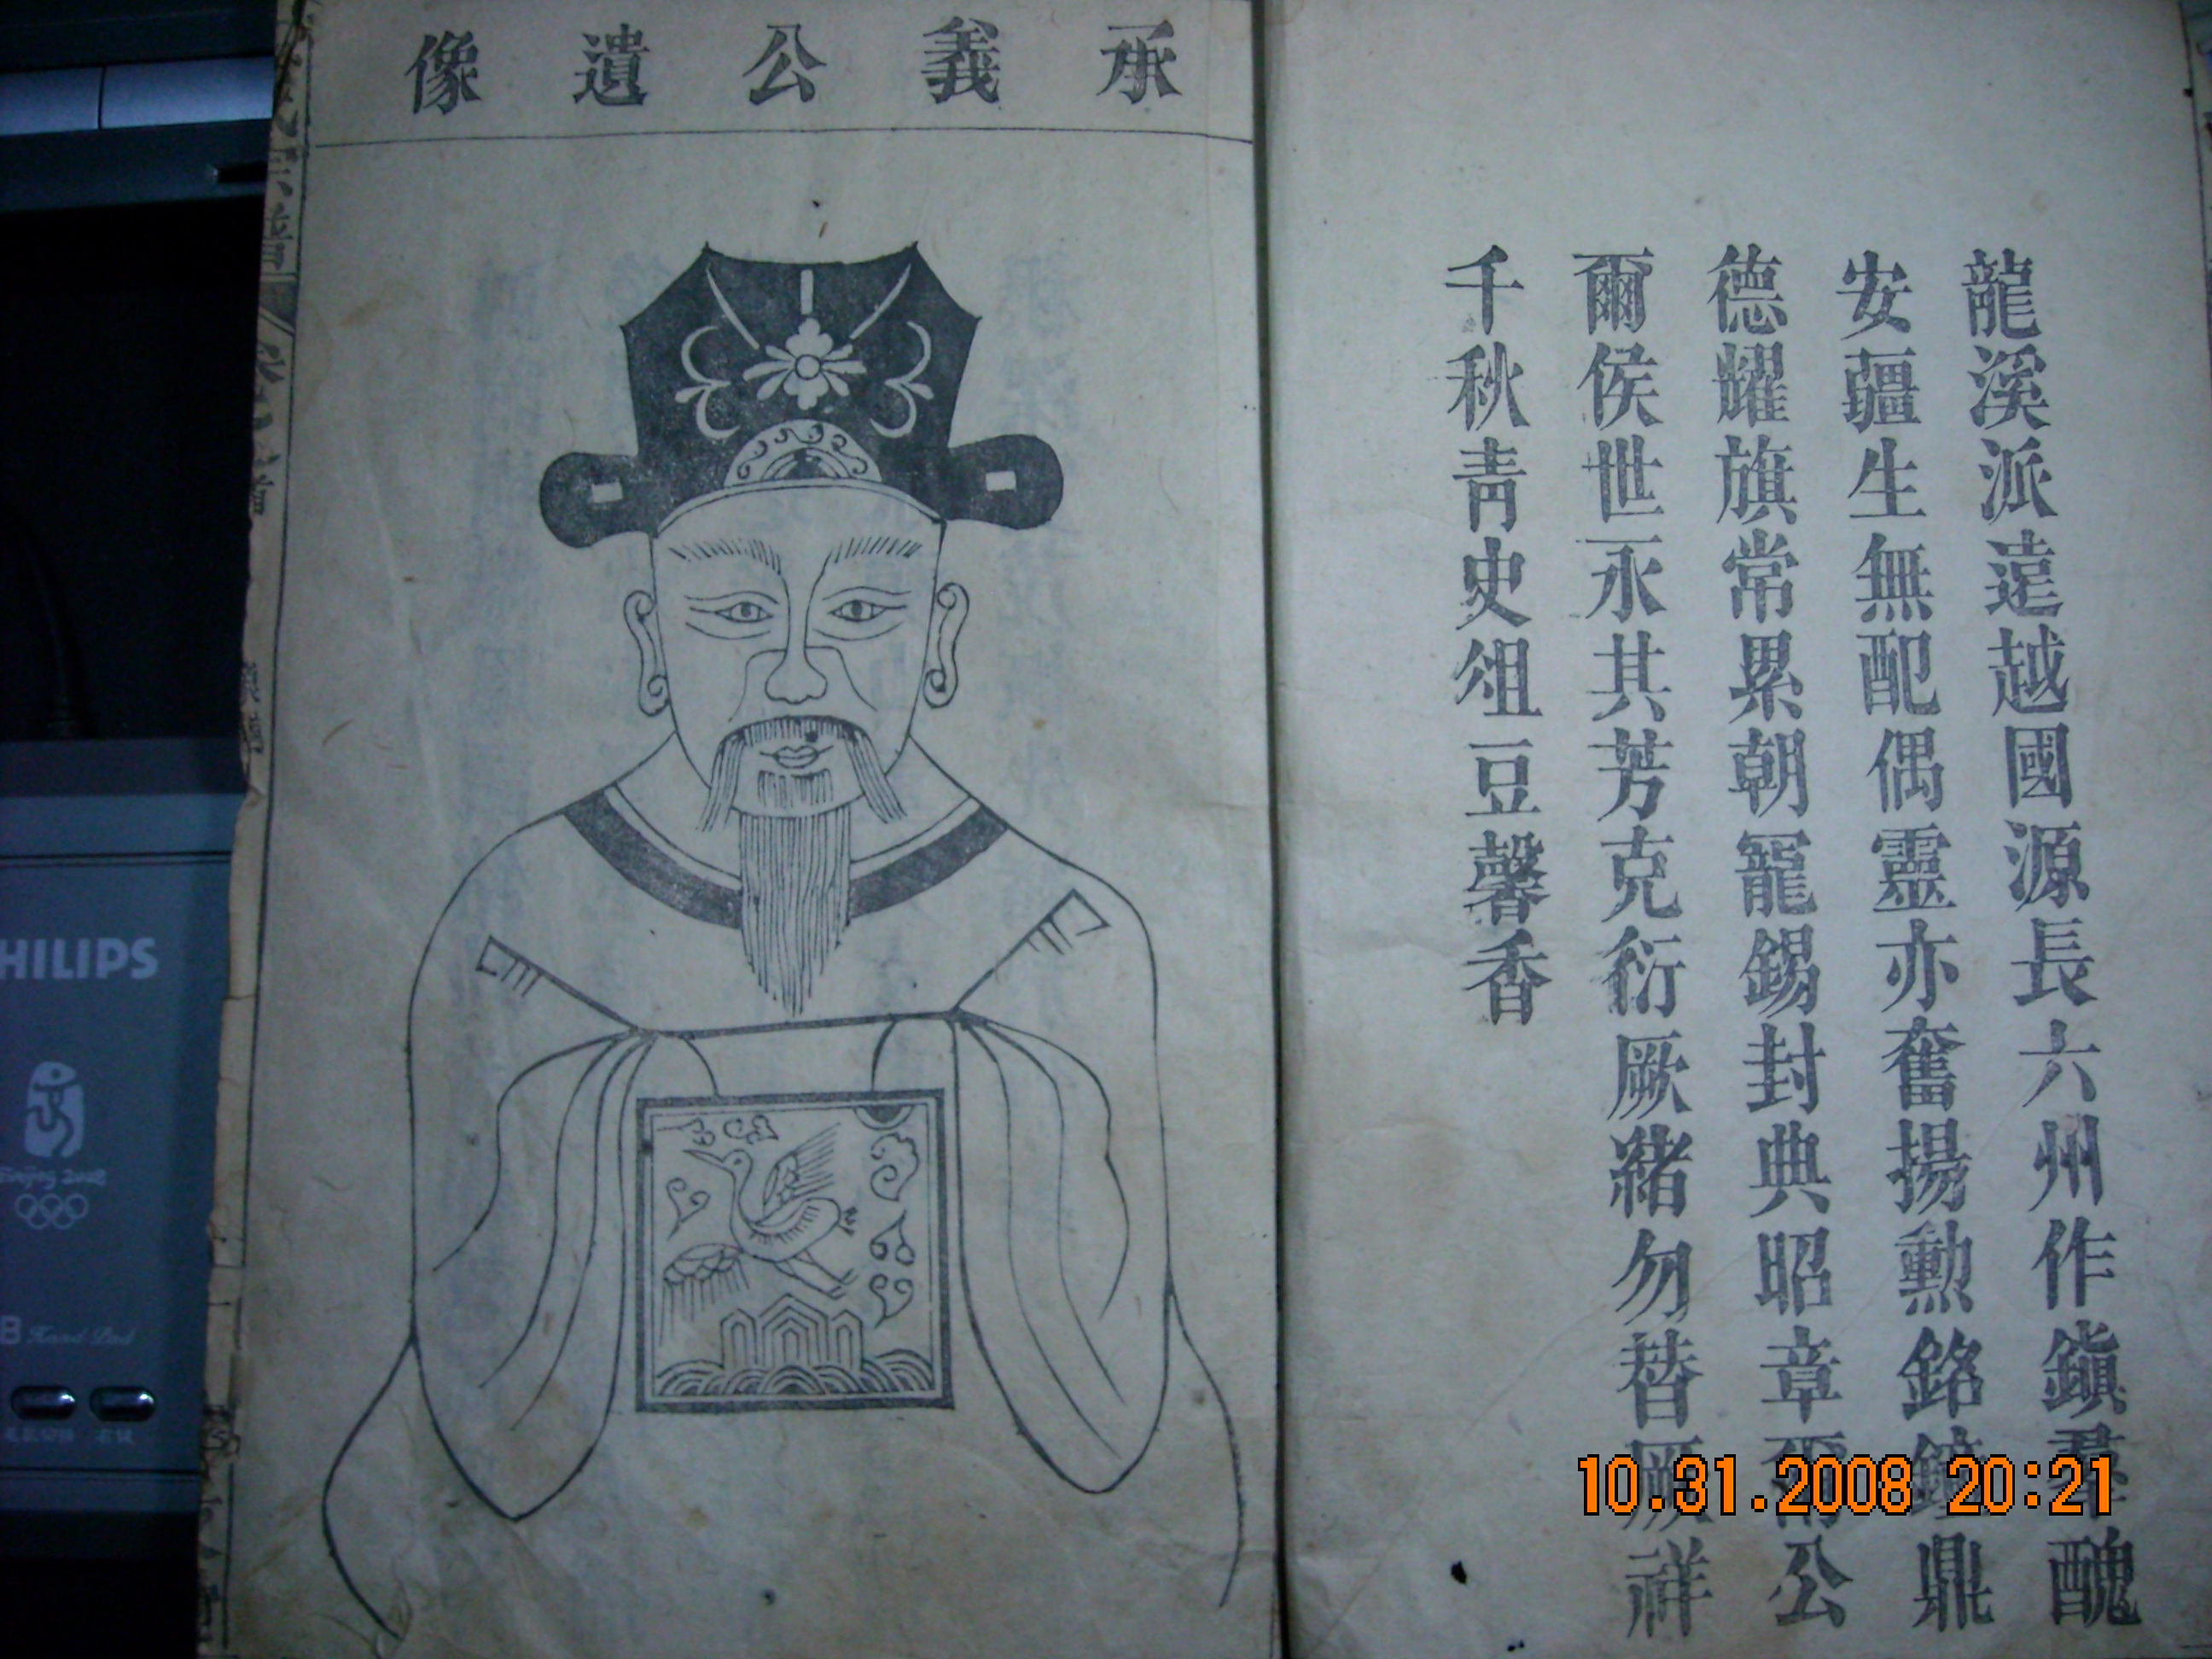 龍溪派遠越國源長六州作鎮羣醜
安疆生無配偶靈亦奮揚勳銘鐘鼎
德耀旗常累朝寵錫封典昭章爾公
爾侯世永其芳克衍厥緒勿替厥祥
千秋青史俎豆馨香
承義公遺像
HILIPS
Beijing 2008
10.31.2008 20:21